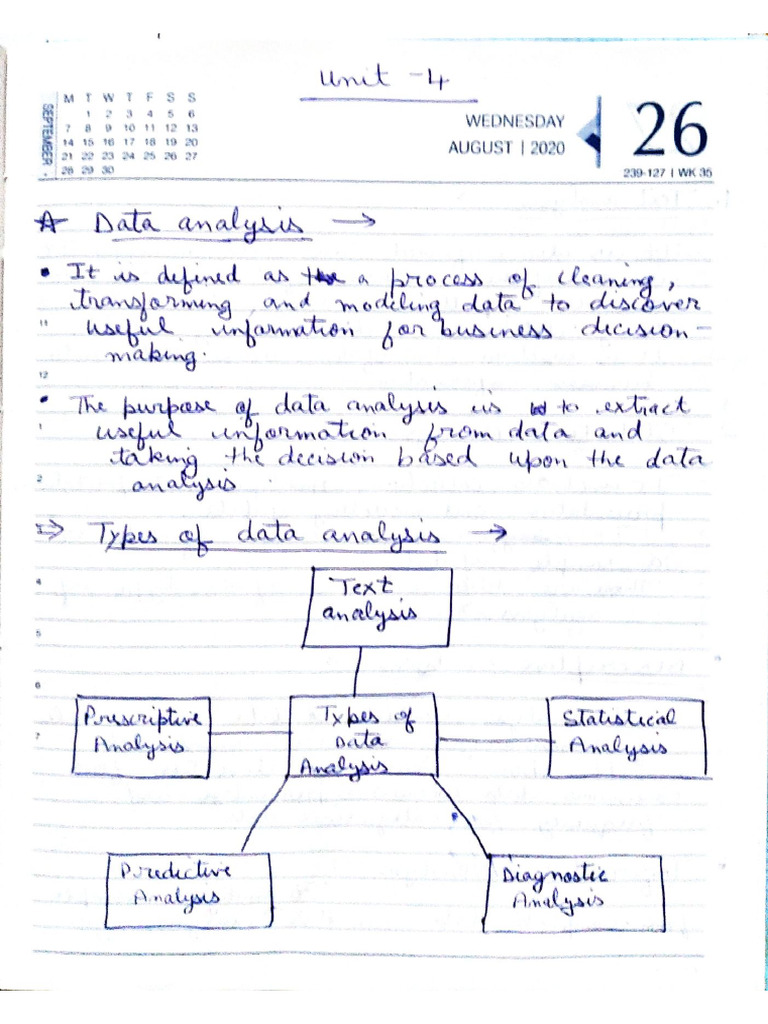 Unit - 4
SEPTEMBER
M T W T F S S
1 2 3 4 5 6
7 8 9 10 11 12 13
14 15 16 17 18 19 20
21 22 23 24 25 26 27
28 29 30
WEDNESDAY
AUGUST | 2020
26
239-127 | WK 35
Data analysis →
• It is defined as a process of cleaning,
transforming and modeling data to discover
11 useful information for business decision
making.
12
• The purpose of data analysis is to extract
1 useful information from data and
taking the decision based upon the data
2 analysis
⇒ Types of data analysis →
4
Text
analysis
5
6
Prescriptive
Analysis
Types of
Data
Analysis
Statistical
Analysis
7
Predictive
Analysis
Diagnostic
Analysis